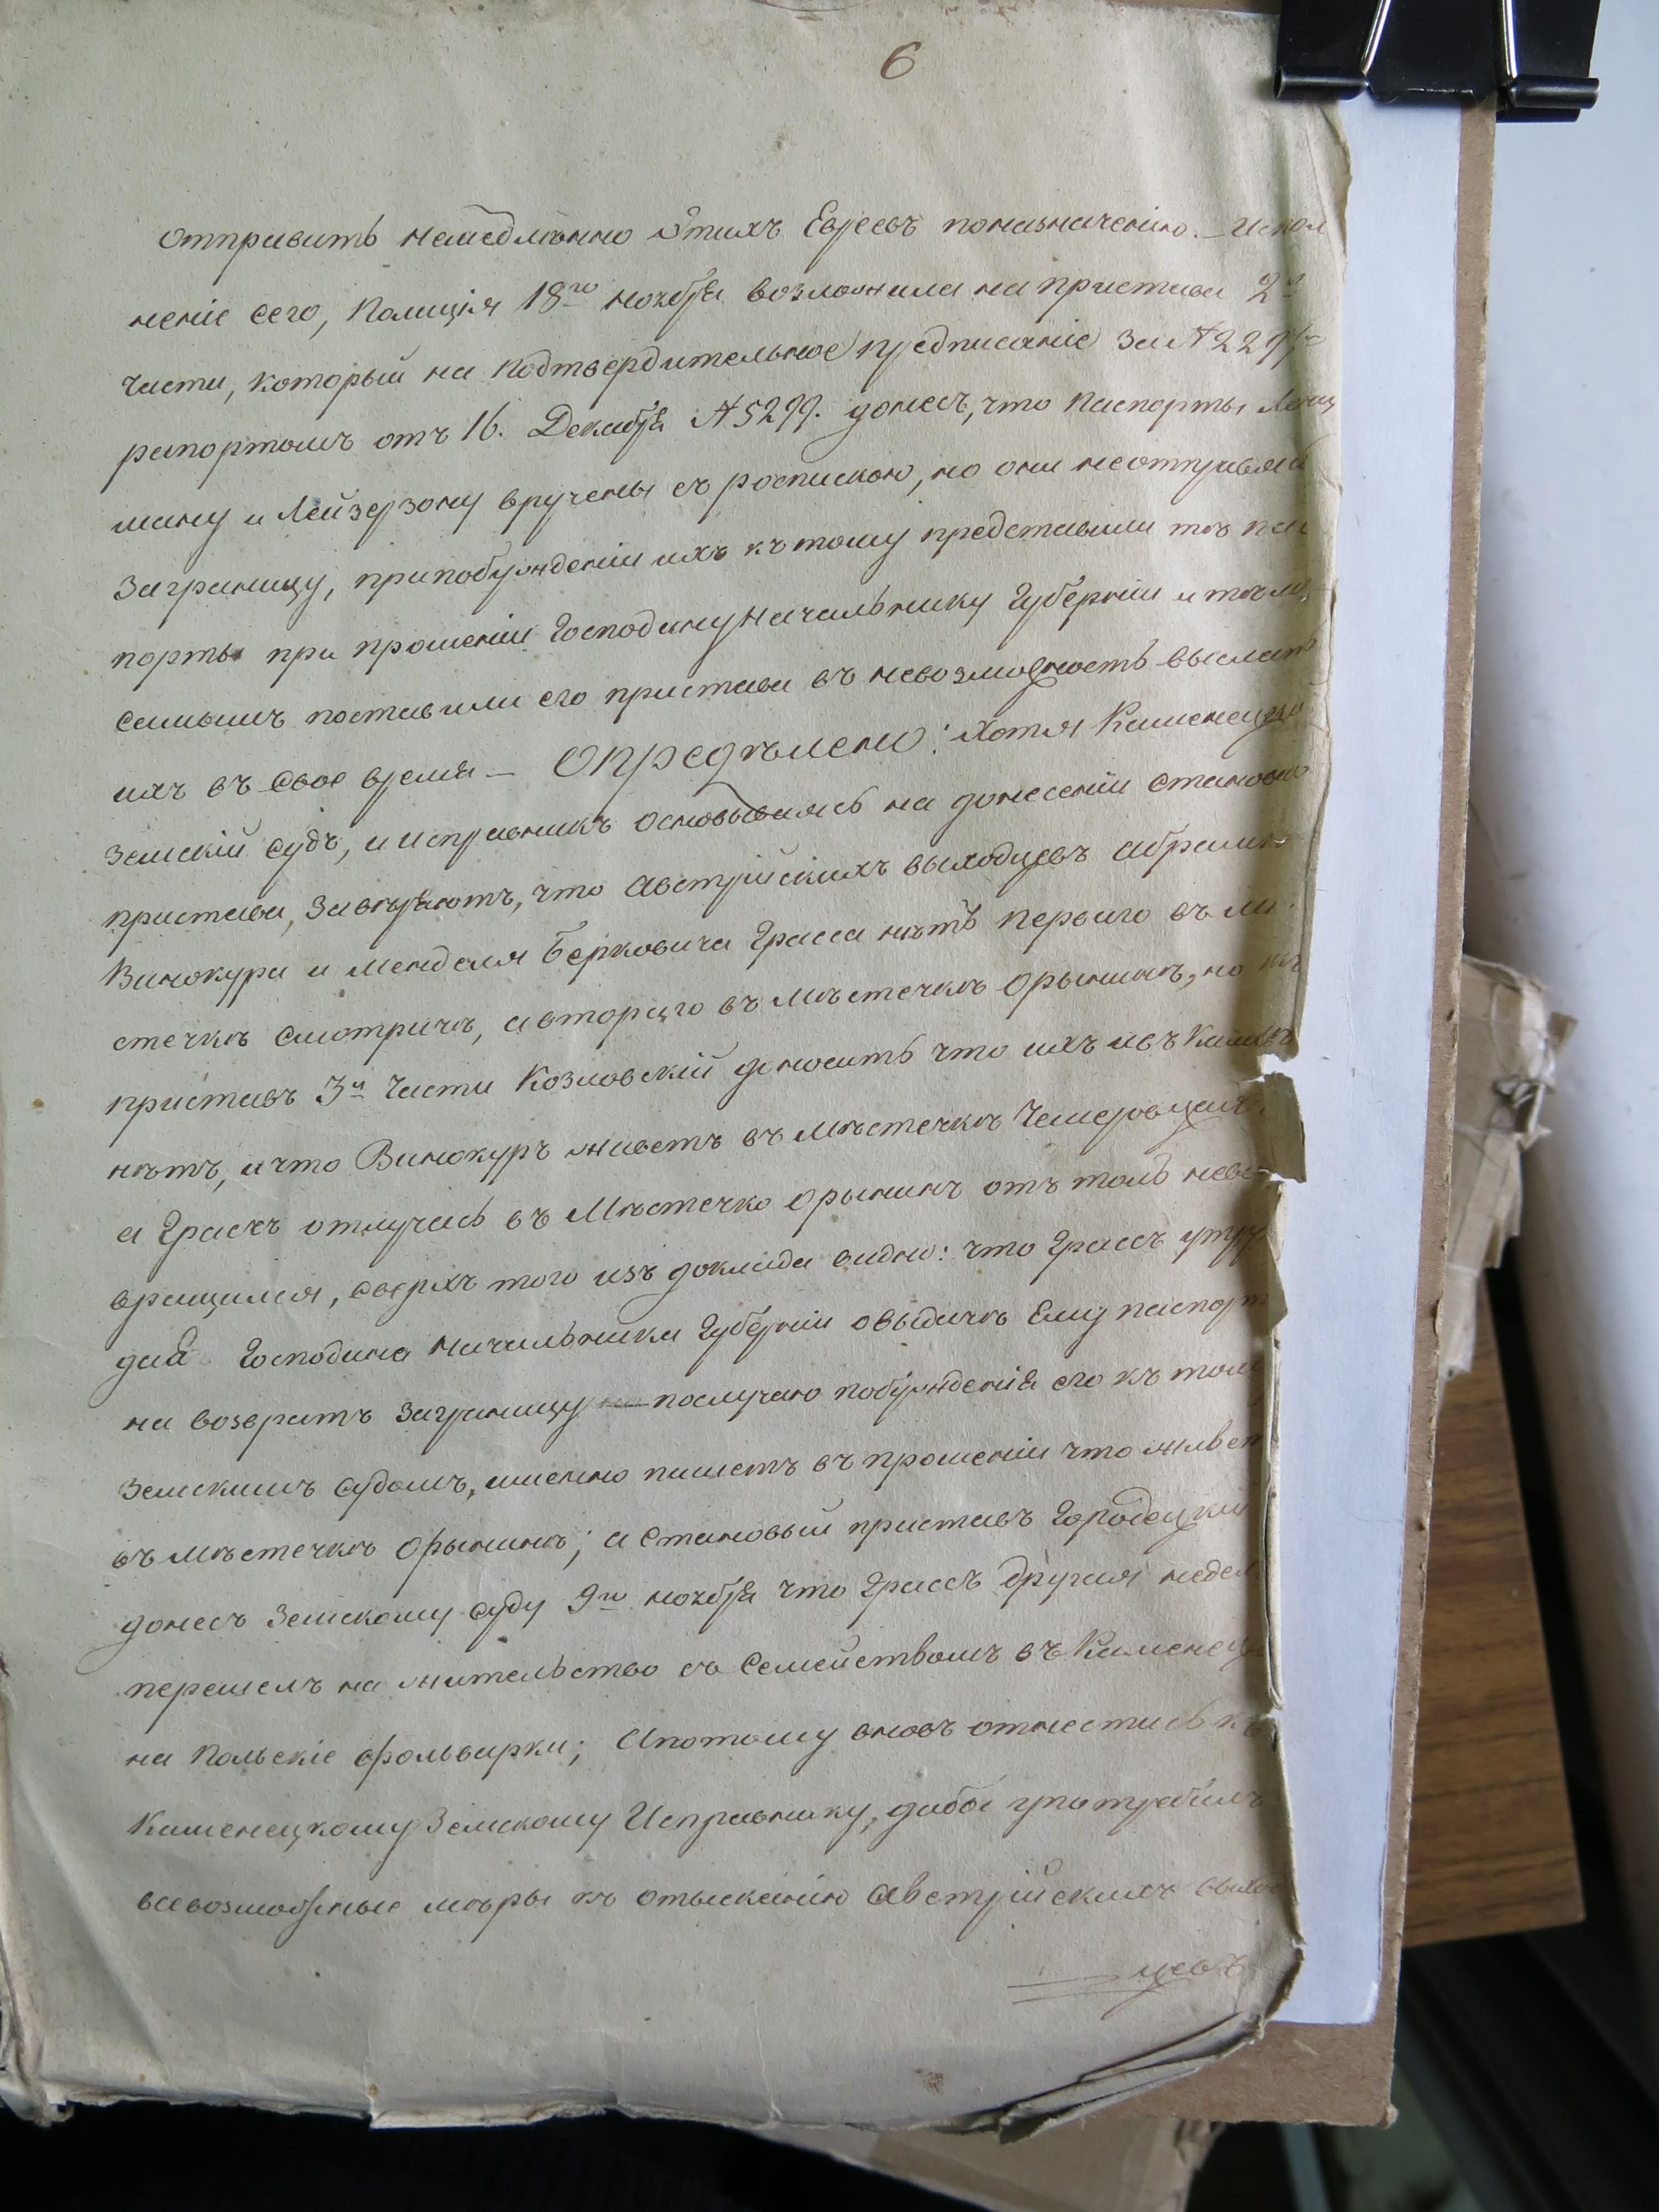 6
отправить немедлѣнно этихъ Евреевъ поназначенію. — Испол
неніе сего, Полиція 18го ноября возложила на пристава 2й
части, который на подтвердительное предписаніе за №
рапортомъ отъ 16. Декабря №5299. донесъ, что паспорты
ману и Лейзерзону вручены съ роспискою, но они неотправясь
заграницу, припобужденіи ихъ къ тому представили тѣ пас
порты при прошеніи Господину Начальнику Губерніи и тѣмъ
самымъ поставили его пристава въ невозможность выслать
ихъ въ свое время — Опредѣлено: Хотя Каменецкій
земскій судъ, и исправникъ основываясь на донесеніи становаго
пристава, завѣряютъ, что австрійскихъ выходцевъ Абрама
Винокура и Менделя Берковича Грасса нѣтъ перваго въ мѣ
стечкѣ Смотричѣ, авторого въ Мѣстечкѣ Орынинѣ, но
приставъ 3й части Козловскій доноситъ что ихъ въ Каменцѣ
нѣтъ, ичто Винокуръ живетъ въ Мѣстечкѣ Чемеровцахъ,
а Грассъ отлучась въ Мѣстечко Орынинъ отъ толь невоз
вращился, сверхъ того изъ доклада видно: что Грассъ утруж
дая Господина Начальника Губерніи овыдачѣ Ему паспорта
на возвратъ заграницу послучаю побужденія его къ тому
земскимъ судомъ, именно пишетъ въ прошеніи что живетъ
въ мѣстечкѣ Орынинѣ; а становый приставъ Городецкій
донесъ Земскому суду 9го ноября что Грассъ другая неделя
перешелъ на жительство съ Семействомъ въ Каменецъ
на Польскіе фольварки; Апотому вновь отнестись къ
Каменецкому Земскому Исправнику, дабы употребилъ
всевозможные мѣры къ отысканію австрійскихъ выход
цевъ